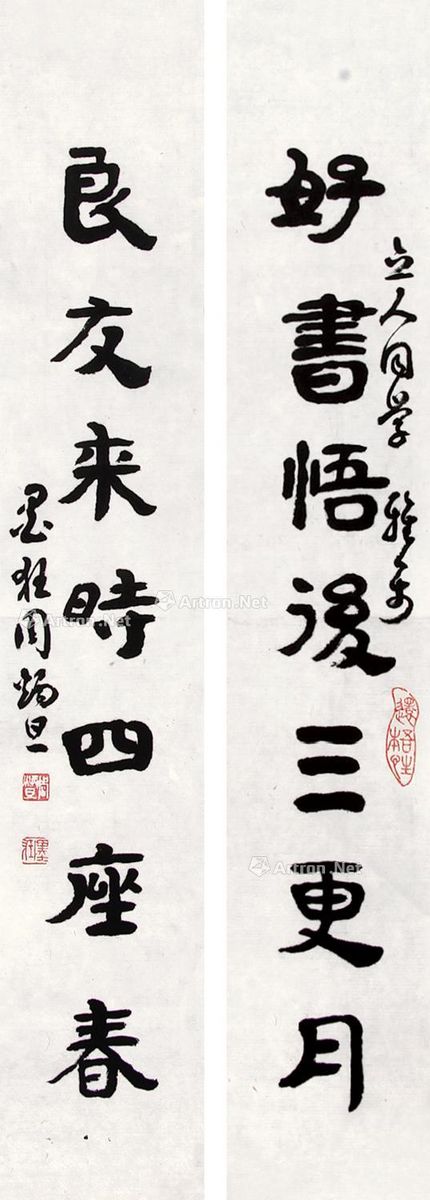 好書悟後三更月
立人同学 雅属
良友来時四座春
墨狂周炳旦
Artron.Net
Artron.Net
Artron.Net
Artron.Net